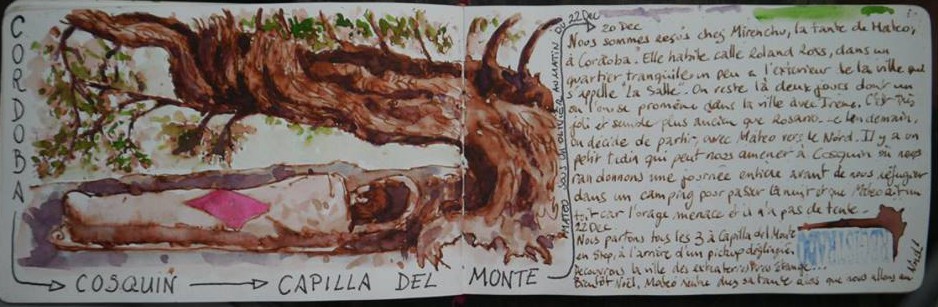 CORDOBA
COSQUIN → CAPILLA DEL MONTE
MATEO SOUS UN OLIVIER AU MATIN DU 22 Dec
20 Dec
Nous sommes reçus chez Mirenchu, la tante de Mateo,
à Cordoba. Elle habite calle Roland Ross, dans un
quartier tranquille un peu a l'extérieur de la ville qui
s'appelle "La Salle". On reste là deux jours dont un
où l'on se promène dans la ville avec Irene. C'est très
joli et semble plus ancien que Rosario. Le lendemain,
on décide de partir, avec Mateo vers le Nord. Il y a un
petit qui peut nous amener à Cosquin où nous
randonnons une journée entière avant de nous réfugier
dans un camping pour passer la nuit et que Mateo ait un
toit car l'orage menace et il n'a pas de tente.
22 Dec
Nous partons tous les 3 à Capilla del Monte
en stop, à l'arrière d'un pickup déglingué.
Découvrons la ville des extraterrestres. Etrange...
Bientôt Noël, Mateo rentre chez sa tante alors que nous allons au
Noël!